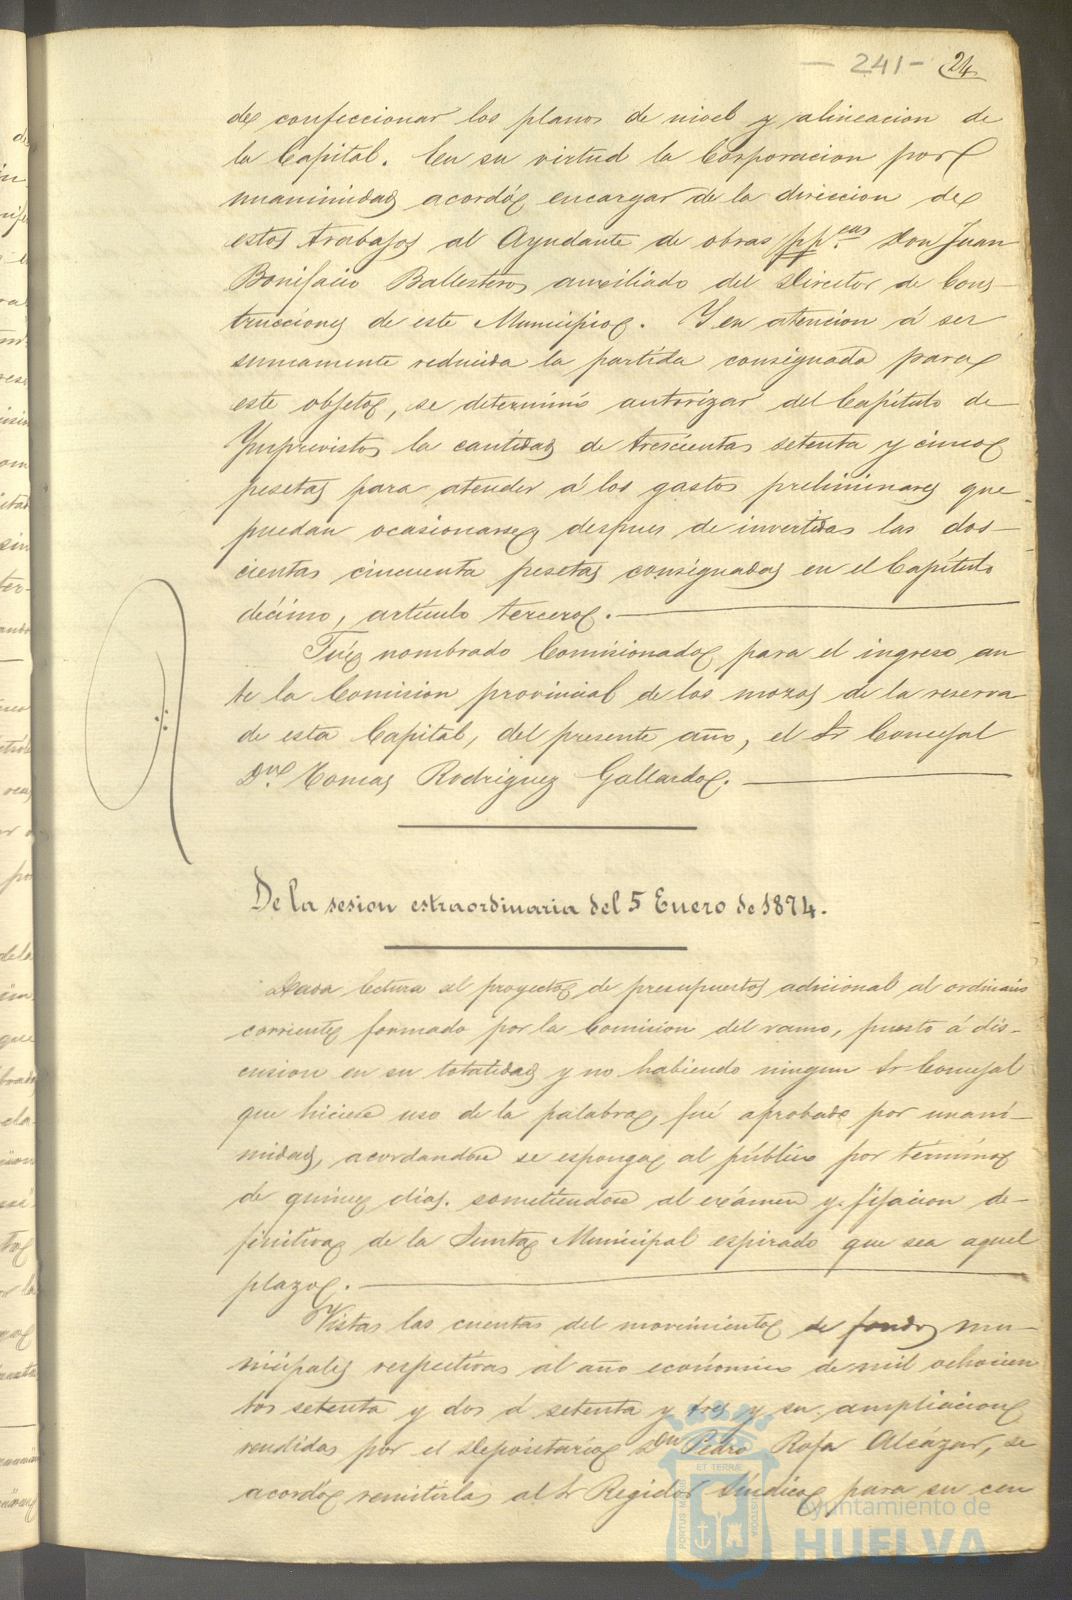 — 241 — 24
de confeccionar los planos de nivel y alineacion de
la Capital. En su virtud la Corporacion por
unanimidad acordó encargar de la direccion de
estos trabajos al Ayudante de obras pp.cas Don Juan
Bonifacio Ballesteros auxiliado del Director de Cons-
trucciones de este Municipio. Y en atencion á ser
sumamente reducida la partida consignada para
este objeto, se determinó autorizar del Capítulo de
Ymprevistos la cantidad de trescientas setenta y cinco
pesetas para atender á los gastos preliminares que
puedan ocasionarse, despues de invertidas las dos-
cientas cincuenta pesetas consignadas en el Capítulo
décimo, artículo tercero.
Fué nombrado Comisionado para el ingreso an
te la Comision provincial de los mozos de la reserva
de esta Capital, del presente año, el Sr Concejal
Dn. Tomas Rodriguez Gallardo.
De la sesion estraordinaria del 5 Enero de 1874.
Dada lectura al proyecto de presupuesto adicional al ordinario
corriente formado por la Comision del ramo, puesto á dis-
cusion en su totalidad y no habiendo ningun Sr Concejal
que hiciese uso de la palabra, fué aprobado por unani-
midad, acordandose se esponga al público por término
de quince dias. sometiendose al exámen y fijacion de-
finitiva de la Junta Municipal espirado que sea aquel
plazo.
Vistas las cuentas del movimiento de fondos mu-
nicipales respectivas al año económico de mil ochocien
tos setenta y dos á setenta y tres y su ampliacion
rendidas por el Depositario Dn Pedro Rafa Alcázar, se
acordó remitirlas al Sr Regidor Síndico para su cen
PORTUS MARIS ET TERRÆ CUSTODIA
Ayuntamiento de
HUELVA